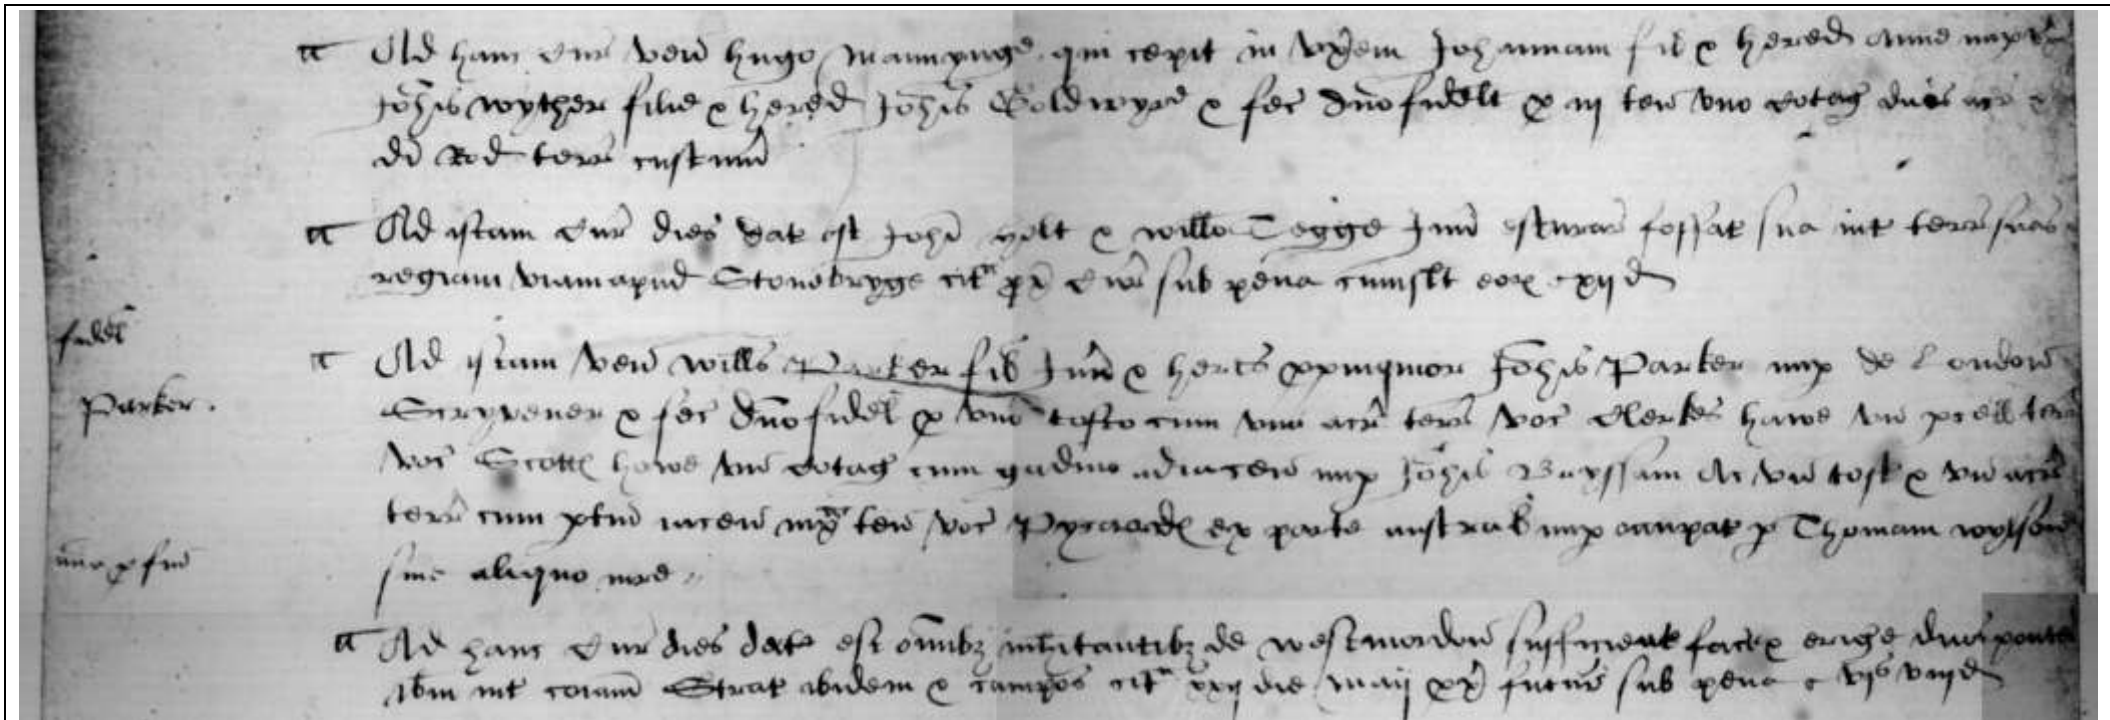 Ad hanc Cur ven hugo Mannynge qui cepit in vxem Johannam fil & hered Anne nup
Johis wyther filie & hered Johis Goldwyre & fec dno fidelt p iij ten vno cotag duab acr &
di Rod terr custum
Ad istam Cur dies dat est Johi holt & willo Tegge Jun escurar fossat sua int terr suas
regiam viam apud Stonebryge cit prx Cur sub pena cuiuslt eor xijd
fidel
Ad istam ven wills Parker fil Jun & heres propinquior Johis Parker nup de London
Parker.
Scryvener & fec dno fidel p vno tofto cum vna acr terr voc Clerkes hawe vn pcell terr
voc Scotts hawe vn cotag cum gardino adiacen nup Johis Bayssam Ac vn toft & vn acr
terr cum ptin iacen iux ten voc Pycards ex parte austral nup occupat p Thomam wylson
sine aliquo
Ad hanc Cur dies dat est omibz inhitantibz de westmordon sufficient face & erige duos pontes
ibm int coiam Strat ibidem & campos cit xxij die maij prx futur sub pena vjs viijd